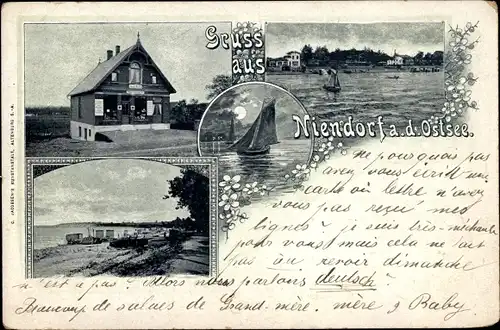 Gruss
aus
Niendorf a. d. Ostsee.
C. JACOBSEN'S KUNSTANSTALT, ALTENBURG S.-A.
ne pourquoi pas
avez vous écrit une
carte où lettre n'avez
vous pas reçu mes
lignes? je suis très-méchante
pour vous mais cela ne fait
pas au revoir dimanche
n'est a pas? Alors nous partons deutsch
Beaucoup de salues de Grand-mère, mère & Baby